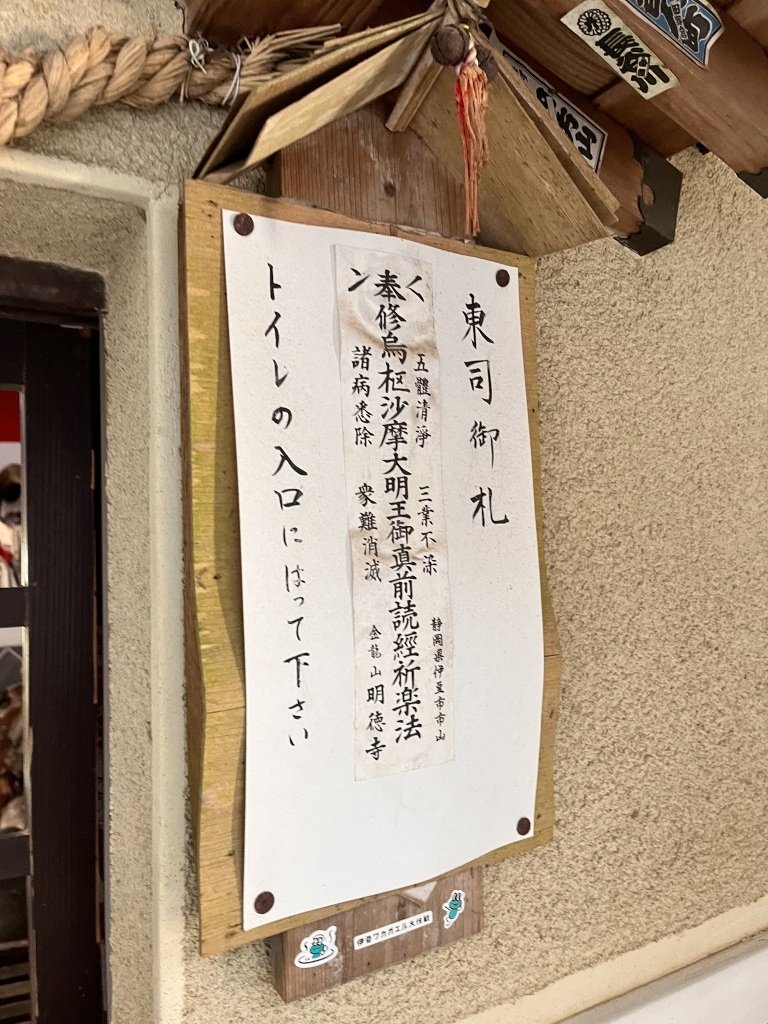 東司御札
く
五體清淨 三業不染 静岡県伊豆市市山
奉修烏枢沙摩大明王御真前読經祈楽法
ン
諸病悉除 衆難消滅 金龍山 明徳寺
トイレの入口にはって下さい
長谷川